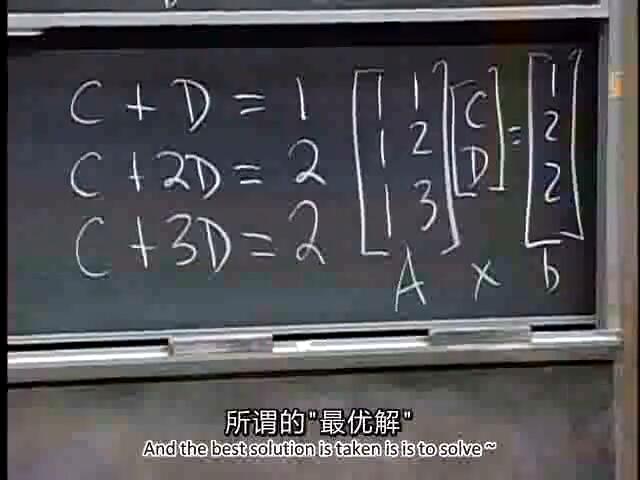 C + D = 1
C + 2D = 2
C + 3D = 2
1 1 C = 1
1 2 D 2
1 3 2
A x b
所谓的"最优解"
And the best solution is taken is is to solve ~